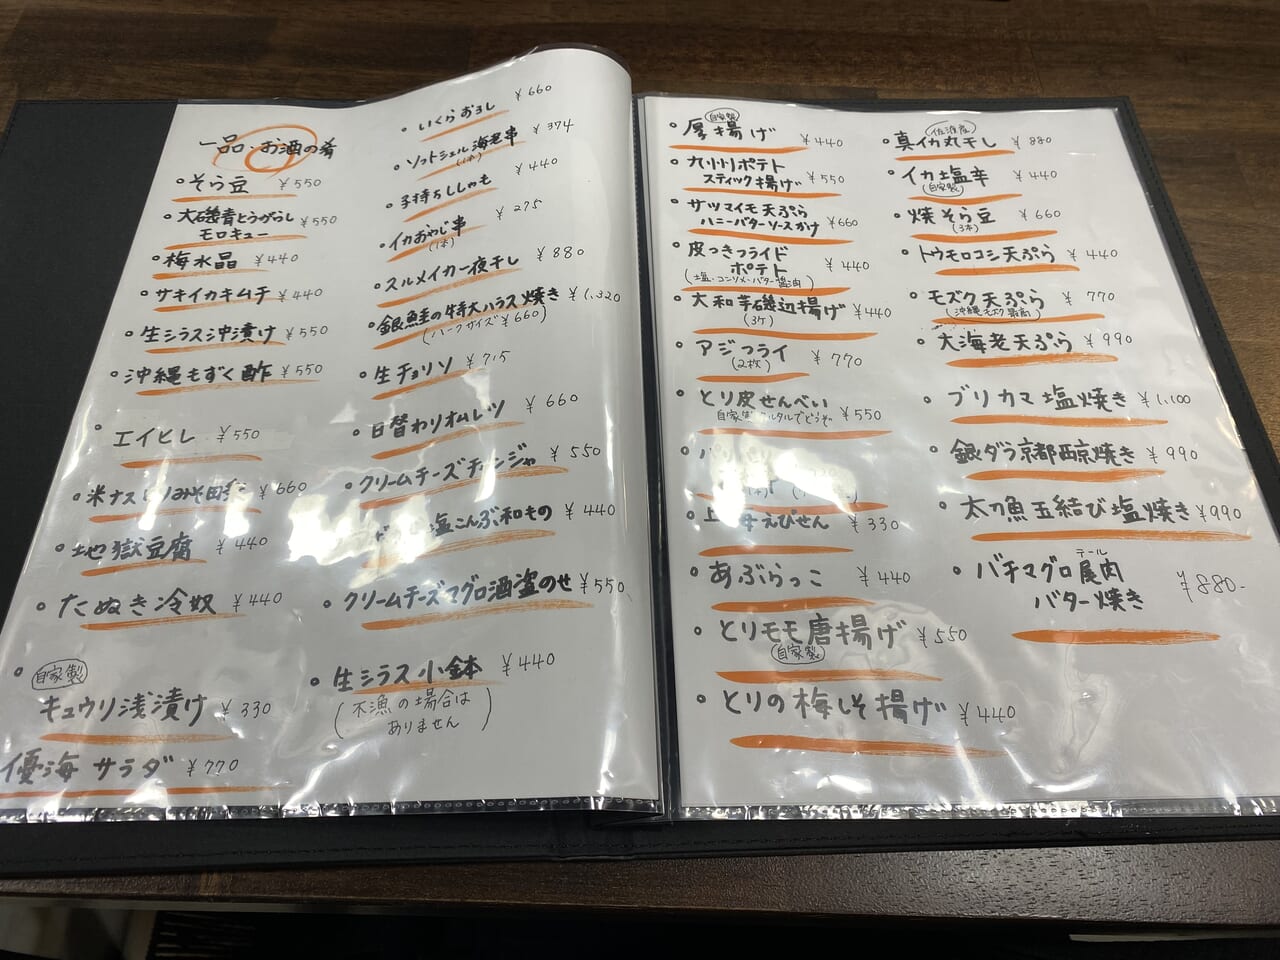 一品・お酒の肴
・そら豆 ¥550
・大磯青とうがらし
モロキュー ¥550
・梅水晶 ¥440
・サキイカキムチ ¥440
・生シラス沖漬け ¥550
・沖縄もずく酢 ¥550
・エイヒレ ¥550
・米ナス ¥660
・地獄豆腐 ¥440
・たぬき冷奴 ¥440
・自家製
キュウリ浅漬け ¥330
優海サラダ ¥770
・いくらおろし ¥660
・ソフトシェル海老串 ¥374
(1本)
・子持ちししゃも ¥440
・イカおやじ串 ¥275
(1本)
・スルメイカ一夜干し ¥880
・銀鮭の特大ハラス焼き ¥1,320
(ハーフサイズ¥660)
・生チョリソ ¥715
・日替わりオムレツ ¥660
・クリームチーズチャンジャ ¥550
塩こんぶ和もの ¥440
・クリームチーズマグロ酒盗のせ ¥550
・生シラス小鉢 ¥440
(不漁の場合は
ありません)
自家製
・厚揚げ ¥440
・カリカリポテト
スティック揚げ ¥550
・サツマイモ天ぷら
ハニーバターソースかけ ¥660
・皮つきフライド
ポテト ¥440
(塩・コンソメ・バター醤油)
・大和芋磯辺揚げ ¥440
(3ケ)
・アジフライ ¥770
(2枚)
・とり皮せんべい
¥550
えびせん ¥330
・あぶらっこ ¥440
・とりモモ唐揚げ ¥550
自家製
・とりの梅しそ揚げ ¥440
(佐渡産)
・真イカ丸干し ¥880
・イカ塩辛 ¥440
(自家製)
・焼そら豆 ¥660
(3本)
・トウモロコシ天ぷら ¥440
・モズク天ぷら ¥770
・大海老天ぷら ¥990
・ブリカマ塩焼き ¥1,100
・銀ダラ京都西京焼き ¥990
・太刀魚玉結び塩焼き ¥990
テール
・バチマグロ尾肉
バター焼き ¥880-